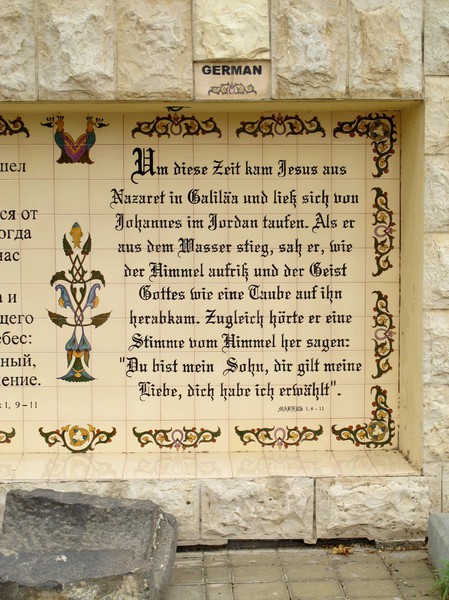 GERMAN
Um diese Zeit kam Jesus aus
Nazaret in Galiläa und ließ sich von
Johannes im Jordan taufen. Als er
aus dem Wasser stieg, sah er, wie
der Himmel aufriß und der Geist
Gottes wie eine Taube auf ihn
herabkam. Zugleich hörte er eine
Stimme vom Himmel her sagen:
"Du bist mein Sohn, dir gilt meine
Liebe, dich habe ich erwählt".
шел
ся от
огда
нас
а и
щего
ебес:
ный,
ение.
1, 9-11